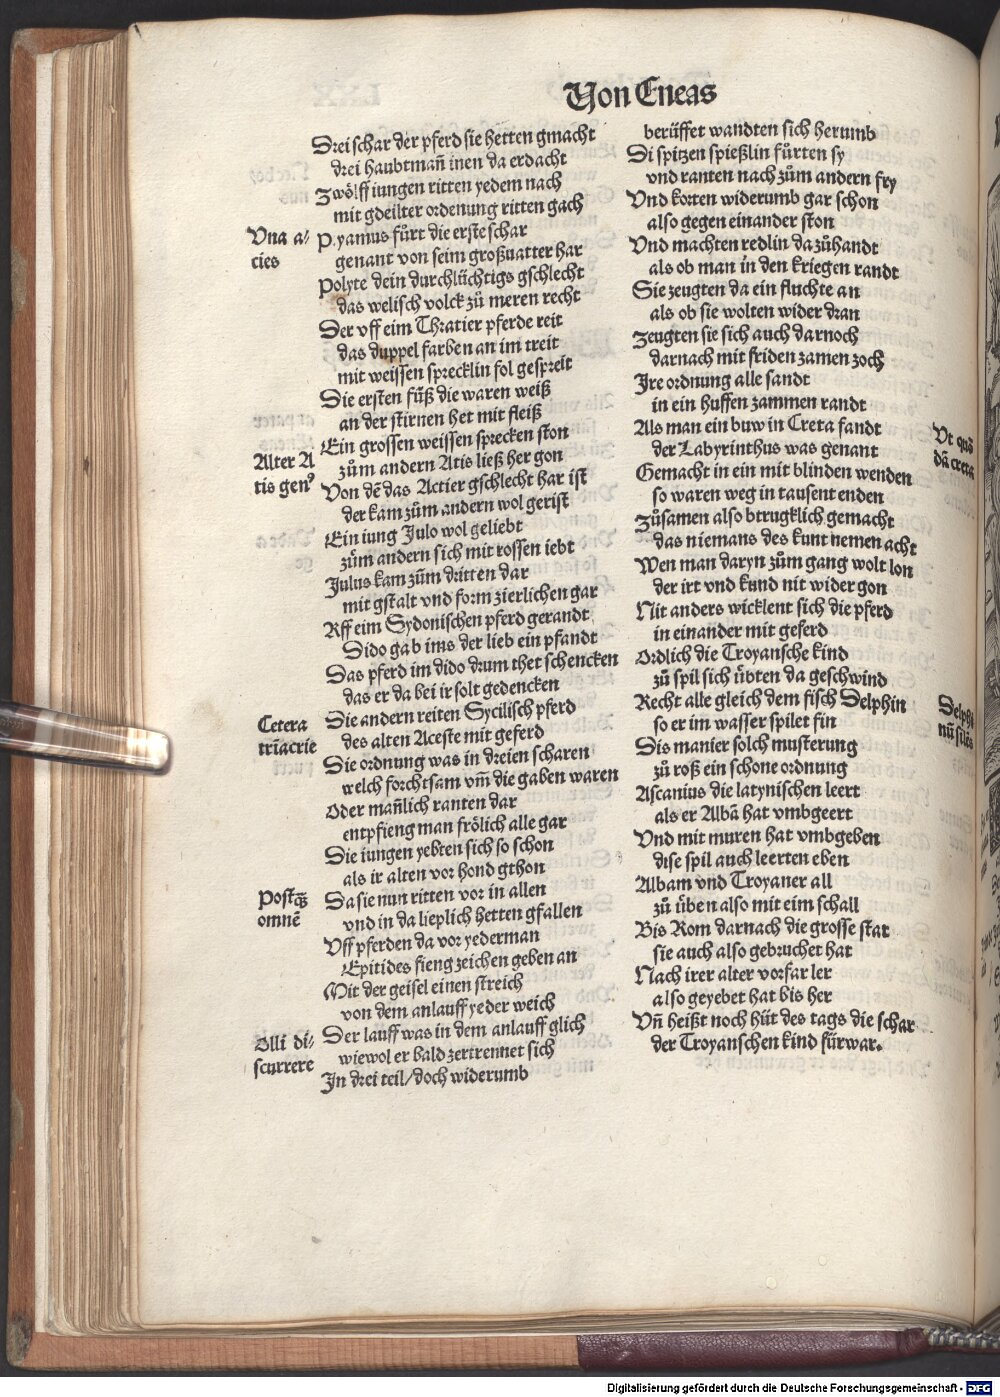 Von Eneas
Drei schar der pferd sie hetten gmacht
drei haubtman̄ inen da erdacht
Zwölff iungen ritten yedem nach
mit gdeilter ordenung ritten gach
Vna a⸗
cies
Pyamus fůrt die erste schar
genant von seim großuatter har
Polyte dein durchlüchtigs gschlecht
das welisch volck zů meren recht
Der vff eim Thratier pferde reit
das duppel farben an im treit
mit weissen sprecklin fol gespreit
Die ersten fůß die waren weiß
an der stirnen het mit fleiß
Ein grossen weissen sprecken ston
Alter A
tis genꝰ
zům andern Atis ließ her gon
Von dē das Actier gschlecht har ist
der kam zům andern wol gerist
Ein iung Julo wol geliebt
zům andern sich mit rossen iebt
Julus kam zům dritten dar
mit gstalt vnd form zierlichen gar
Vff eim Sydonischen pferd gerandt
Dido gab ims der lieb ein pfandt
Das pferd im dido drum thet schencken
das er da bei ir solt gedencken
Cetera
trīacrie
Die andern reiten Sycilisch pferd
des alten Aceste mit geferd
Die ordnung was in dreien scharen
welch forchtsam vm̄ die gaben waren
Oder man̄lich ranten dar
entpfieng man frölich alle gar
Die iungen yebten sich so schon
als ir alten vor hond gthon
Postq̄ꝫ
omnē
Da sie nun ritten vor in allen
vnd in da lieplich hetten gfallen
Vff pferden da vor yederman
Epitides fieng zeichen geben an
Mit der geisel einen streich
von dem anlauff yeder weich
Olli di⸗
scurrere
Der lauff was in dem anlauff glich
wiewol er bald zertrennet sich
In drei teil/doch widerumb
berüffet wandten sich herumb
Di spitzen spießlin fůrten sy
vnd ranten nach zům andern fry
Vnd korten widerumb gar schon
also gegen einander ston
Vnd machten redlin da zůhandt
als ob man in den kriegen randt
Sie zeugten da ein fluchte an
als ob sie wolten wider dran
Zeugten sie sich auch darnoch
darnach mit friden zamen zoch
Ire ordnung alle sandt
in ein huffen zammen randt
Vt quō⸗
dā creta
Als man ein buw in Creta fandt
der Labyrinthus was genant
Gemacht in ein mit blinden wenden
so waren weg in tausent enden
Zůsamen also btrugklich gemacht
das niemans des kunt nemen acht
Wen man daryn zům gang wolt lon
der irt vnd kund nit wider gon
Nit anders wicklent sich die pferd
in einander mit geferd
Ordlich die Troyansche kind
zů spil sich übten da geschwind
Delphi
nū sil'es
Recht alle gleich dem fisch Delphin
so er im wasser spilet fin
Dis manier solch musterung
zů roß ein schone ordnung
Ascanius die latynischen leert
als er Albā hat vmbgeert
Vnd mit muren hat vmbgeben
dise spil auch leerten eben
Albam vnd Troyaner all
zů üben also mit eim schall
Bis Rom darnach die grosse stat
sie auch also gebruchet hat
Nach irer alter vorfar ler
also geyebet hat bis her
Vn̄ heißt noch hüt des tags die schar
der Troyanschen kind fürwar.
Digitalisierung gefördert durch die Deutsche Forschungsgemeinschaft - DFG